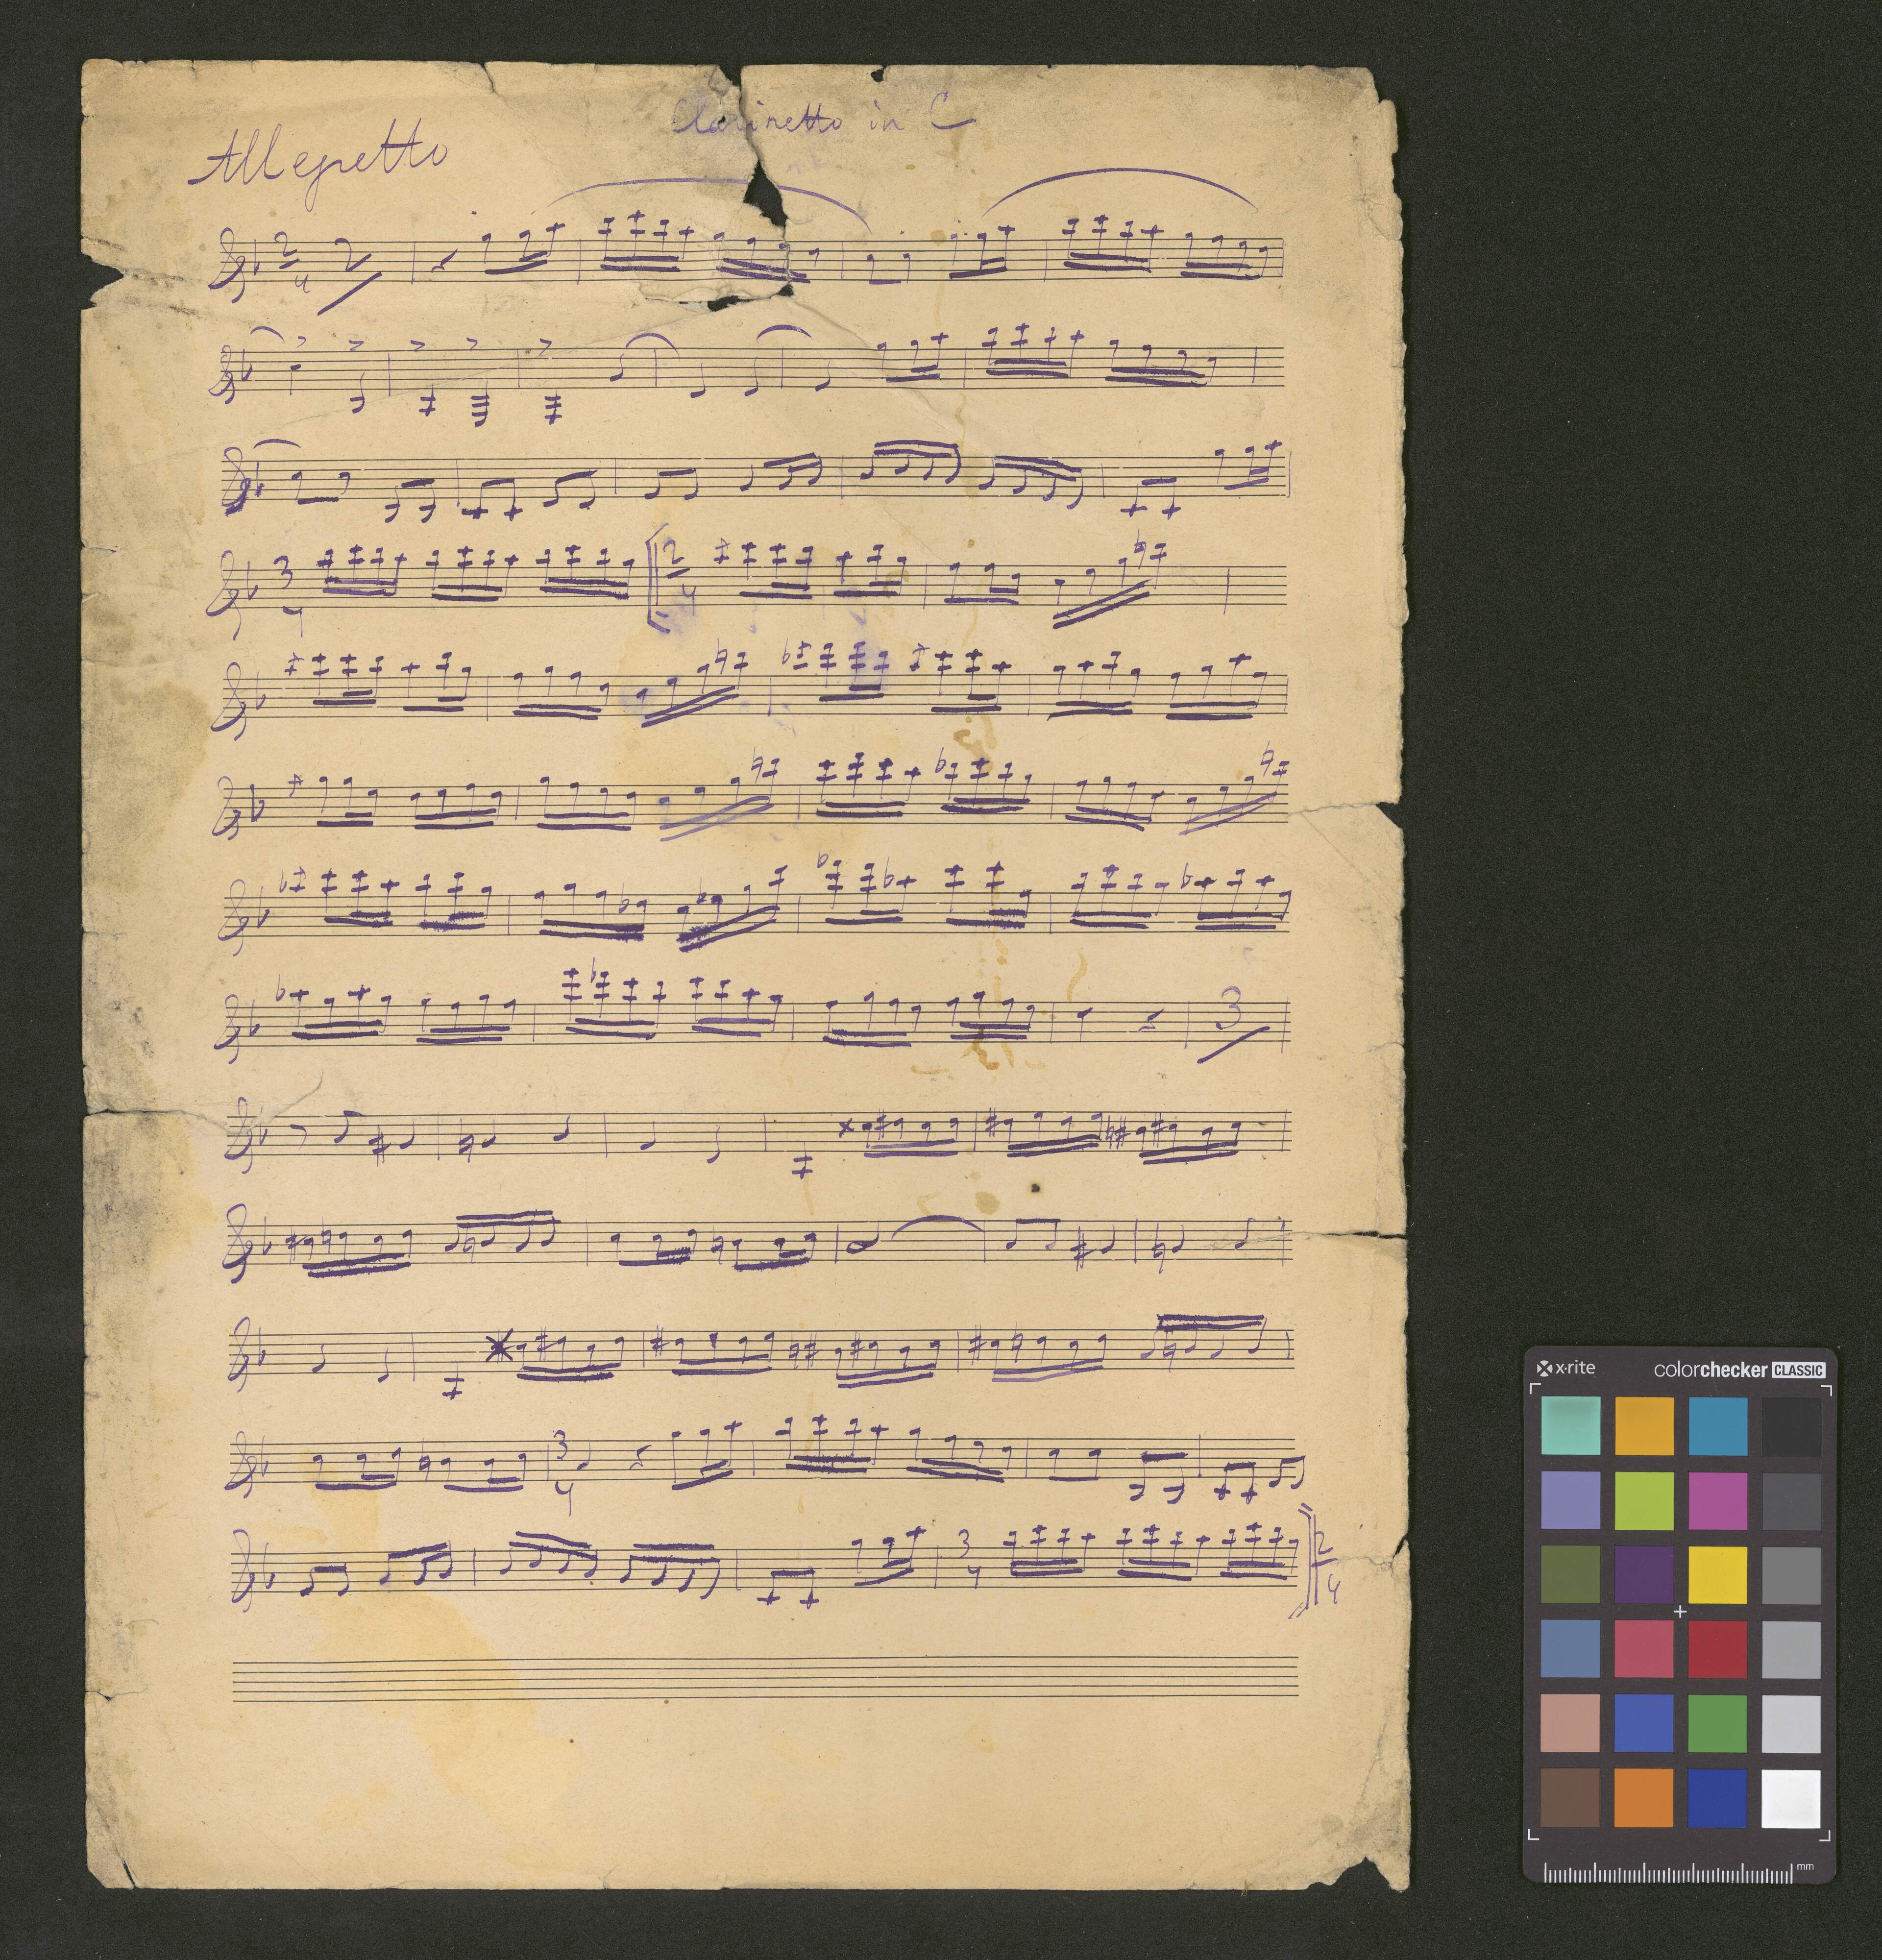 Clarinetto in C
Allegretto
2
4
2
3
4
2
4
3
3
4
3
4
2
4
x·rite
colorchecker CLASSIC
mm